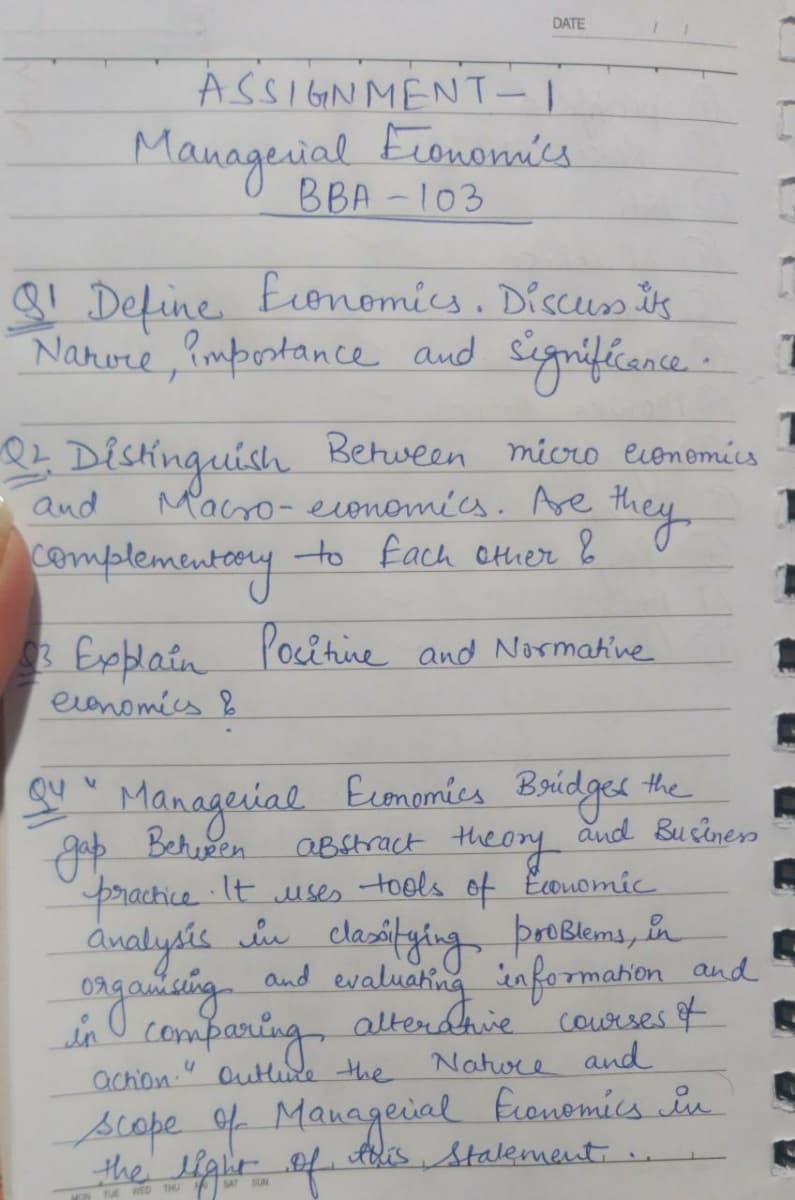 DATE / /
ASSIGNMENT-1
Managerial Economics
BBA-103
Q1 Define Economics. Discuss its
Nature, importance and significance.
Q2. Distinguish Between micro economics
and Macro-economics. Are they
complementary to Each other ?
Q3 Explain Positive and Normative
economics ?
Q4 " Managerial Economics Bridges the
gap Between abstract theory and Business
practice. It uses tools of Economic
analysis in classifying problems, in
organising and evaluating information and
in comparing alterative courses of
action." Outline the Nature and
scope of Managerial Economics in
the light of this statement...
MON TUE WED THU FRI SAT SUN